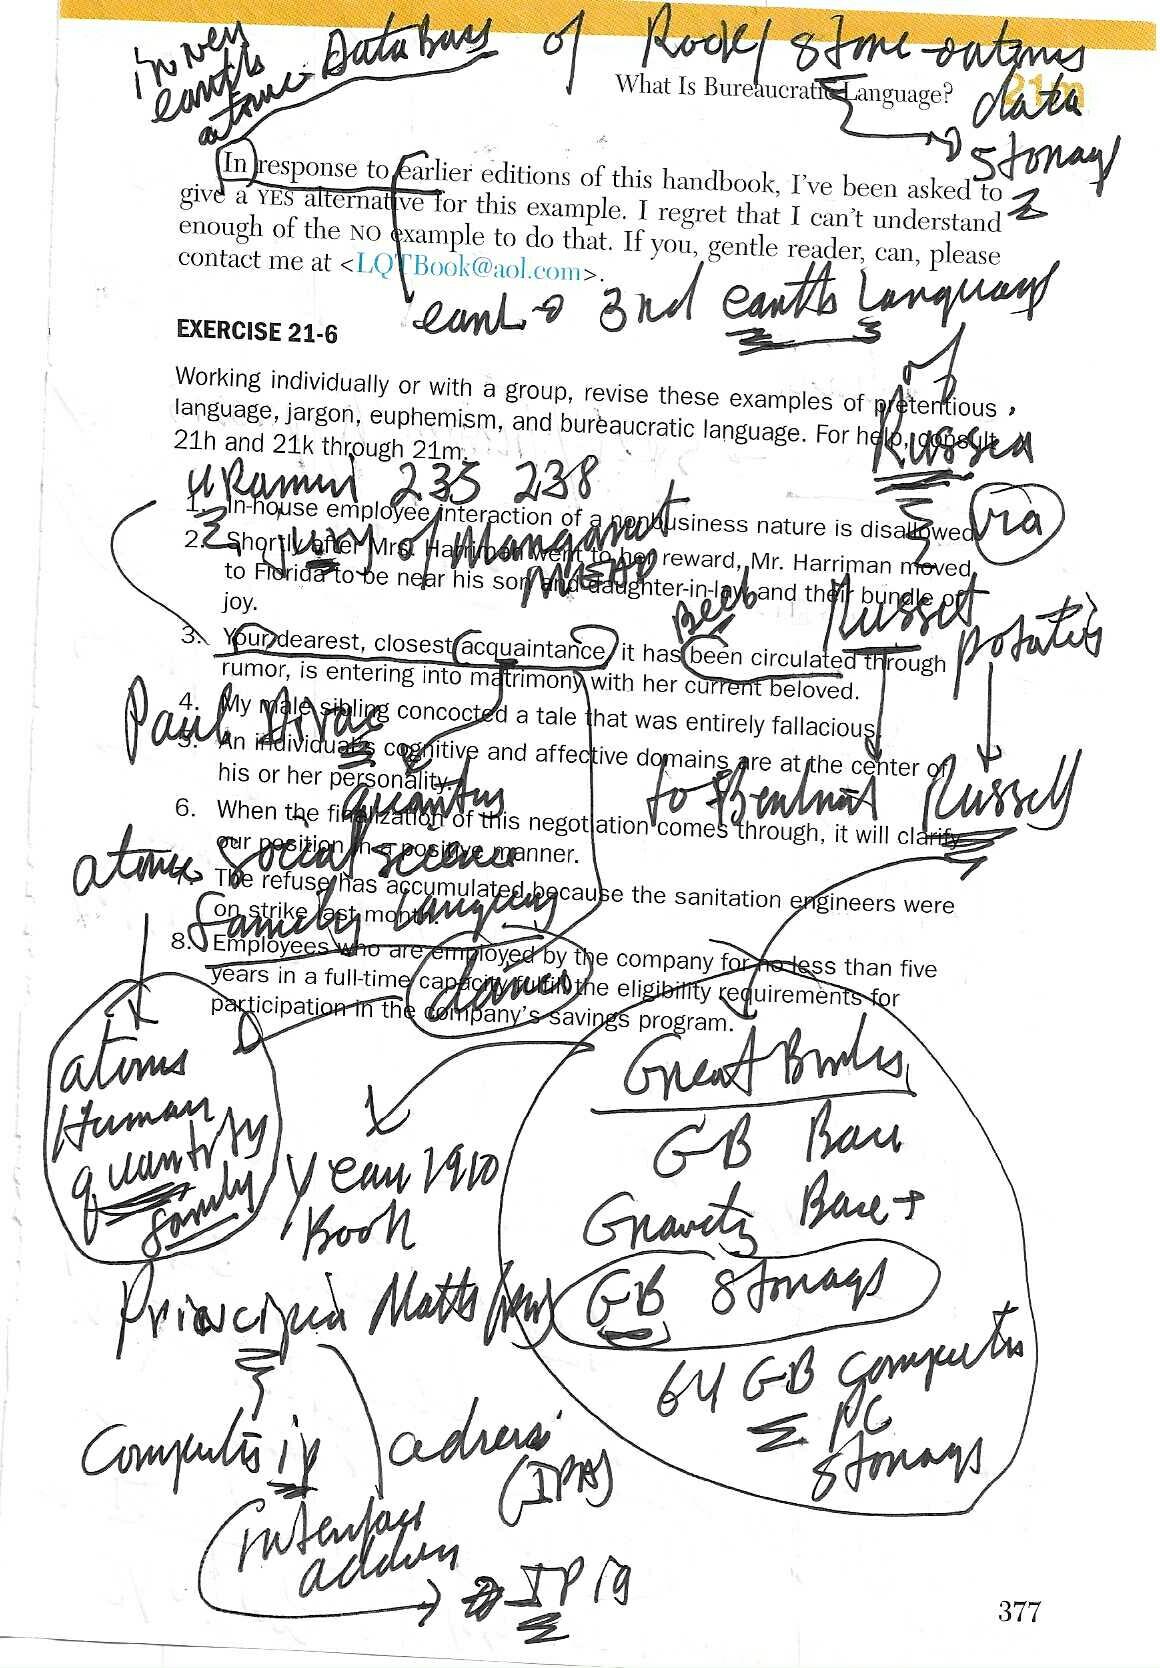 inner
earth's
atomic DataBase of Rock/stone-atoms
What Is Bureaucratic Language?
21m
data
storage
In response to earlier editions of this handbook, I've been asked to
give a YES alternative for this example. I regret that I can't understand
enough of the NO example to do that. If you, gentle reader, can, please
contact me at <LQTBook@aol.com>.
3rd earths language
of
Russea
via
EXERCISE 21-6
Working individually or with a group, revise these examples of pretentious
language, jargon, euphemism, and bureaucratic language. For help, consult
21h and 21k through 21m.
235 238
1. In-house employee interaction of a nonbusiness nature is disallowed.
of
2. Shortly after Mrs. Harriman went to her reward, Mr. Harriman moved
to Florida to be near his son and daughter-in-law and their bundle of
joy.
Russet
potatos
3. Your dearest, closest acquaintance, it has been circulated through
rumor, is entering into matrimony with her current beloved.
Paul Dirac
4. My male sibling concocted a tale that was entirely fallacious.
5. An individual's cognitive and affective domains are at the center of
his or her personality.
to Russell
6. When the finalization of this negotiation comes through, it will clarify
our position in a positive manner.
atomic social science
7. The refuse has accumulated because the sanitation engineers were
on strike last month.
family
8. Employees who are employed by the company for no less than five
years in a full-time capacity fulfill the eligibility requirements for
participation in the company's savings program.
atoms
Human
quantity
family
year 1910
Book
Principia
Great
GB
Gravity Base
GB storage
64 GB computer
PC
storage
ip
(IPA)
interface
address
IP ig
377